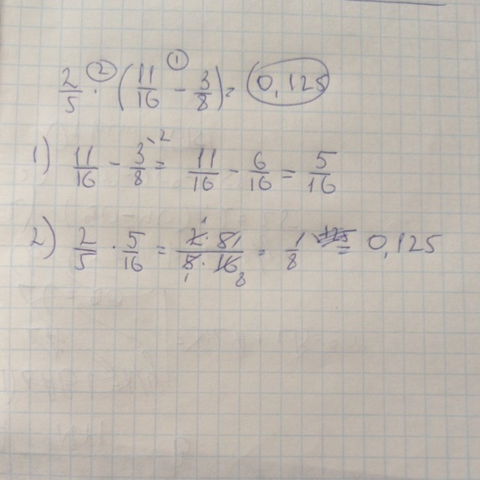 2/5 · (11/16 − 3/8) = 0,125
1) 11/16 − 3/8 = 11/16 − 6/16 = 5/16
2) 2/5 · 5/16 = 2·5/5·16 = 1/8 = 0,125